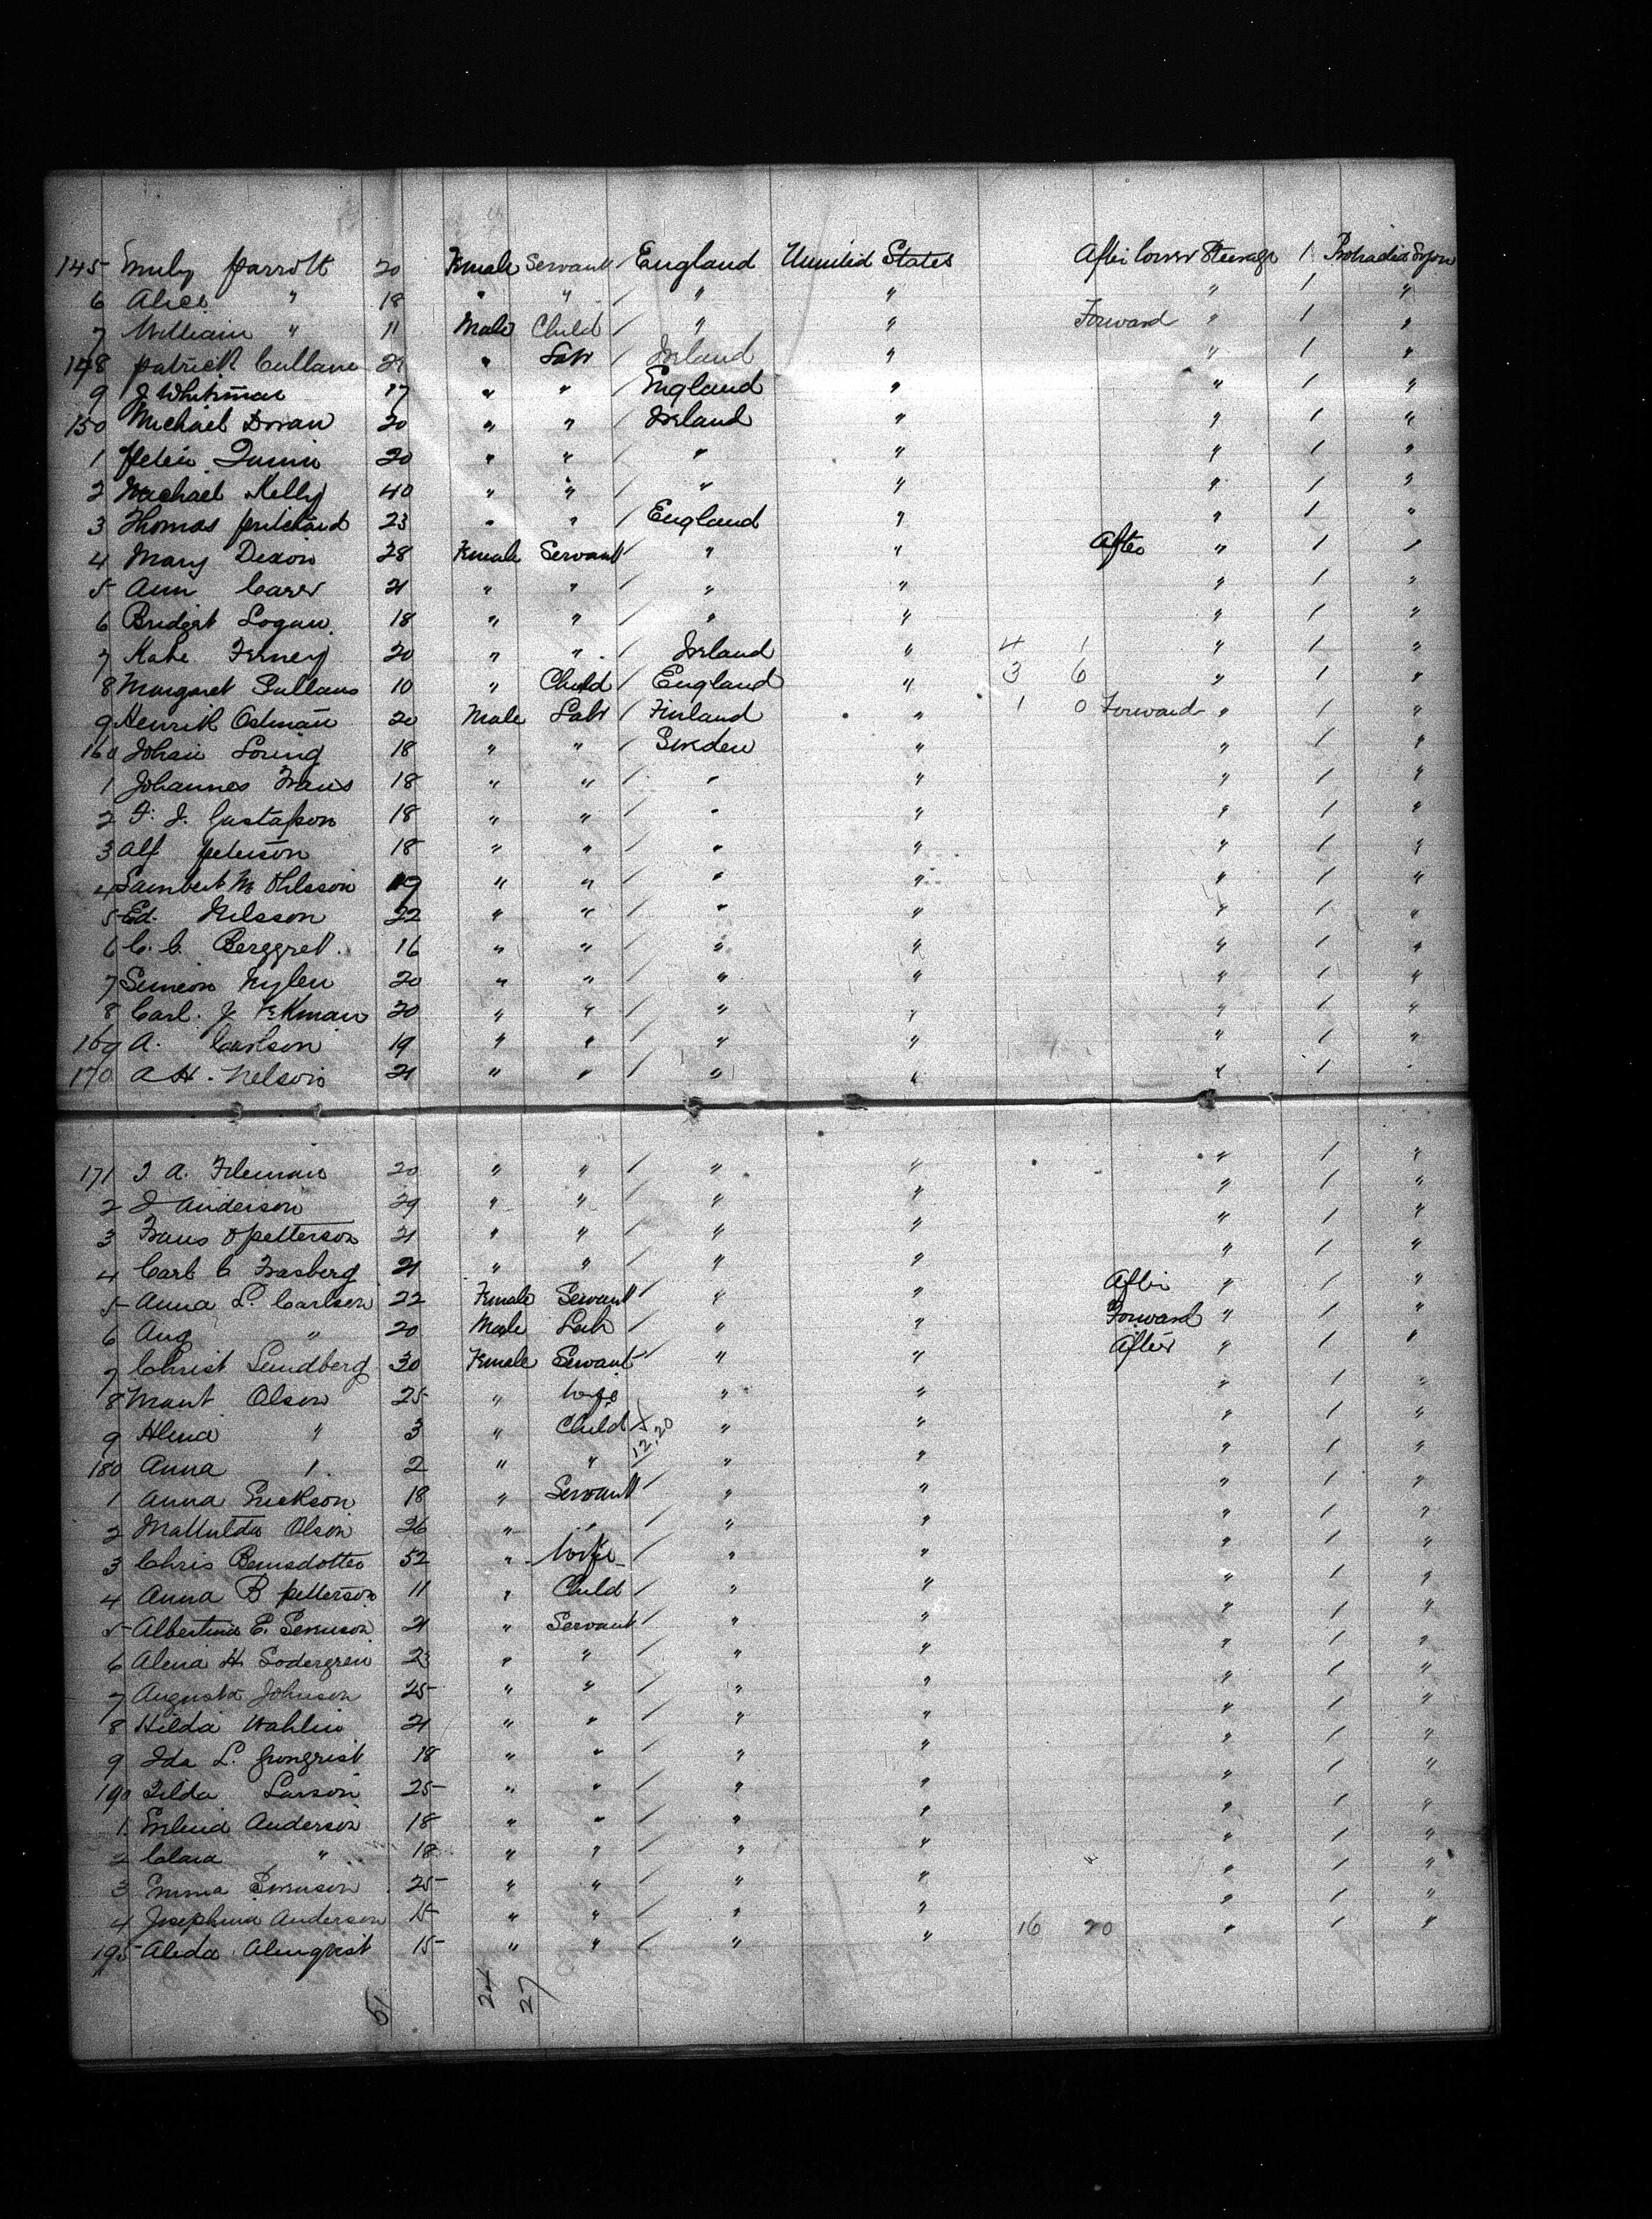 145 Emily Parrott 20 Female Servant / England United States After lower Steerage 1 Protracted Sojour
6 Alice " 18 " " / " " " 1 "
7 William " 11 Male Child / " " Forward " 1 "
148 Patrick Cullane 29 " Labr / Ireland " " 1 "
9 J Whitman 17 " " / England " " 1 "
150 Michael Doran 20 " " / Ireland " " 1 "
1 Peter Quinn 20 " " / " " " 1 "
2 Michael Kelly 40 " " / " " " 1 "
3 Thomas Pritchard 23 " " / England " " 1 "
4 Mary Dixon 28 Female Servant / " " After " 1 "
5 Ann Carer 21 " " / " " " 1 "
6 Bridget Logan 18 " " / " " " 1 "
7 Kate Ferney 20 " " / Ireland " 4 1 " 1 "
8 Margaret Sullans 10 " Child / England " 3 6 " 1 "
9 Henrik Ostman 20 Male Labr / Finland " 1 0 Forward " 1 "
160 Johan Loring 18 " " / Sweden " " 1 "
1 Johannes Frans 18 " " / " " " 1 "
2 F. J. Gustafson 18 " " / " " " 1 "
3 Alf Peterson 18 " " / " " " 1 "
4 Lambert M Ohlsson 19 " " / " " " 1 "
5 Ed. Nilsson 22 " " / " " " 1 "
6 C. C. Berggret. 16 " " / " " " 1 "
7 Simeon Nylen 20 " " / " " " 1 "
8 Carl. J Ekman 20 " " / " " " 1 "
169 A. Carlson 19 " " / " " " 1 "
170 A H. Nelson 21 " " / " " " 1 "
171 J A. Fileman 20 " " / " " " 1 "
2 J Anderson 29 " " / " " " 1 "
3 Frans O Petterson 21 " " / " " " 1 "
4 Carl C Frasberg 21 " " / " " " 1 "
5 Anna L. Carlson 22 Female Servant / " " After " 1 "
6 Aug " 20 Male Labr / " " Forward " 1 "
7 Christ Lundberg 30 Female Servant / " " After " 1 "
8 Mant Olson 25 " Wife " " " 1 "
9 Alma " 3 " Child X 12.20 " " " 1 "
180 Anna " 2 " " " " " 1 "
1 Anna Erickson 18 " Servant / " " " 1 "
2 Mathilda Olson 26 " " / " " " 1 "
3 Chris Bensdotter 52 " Wife / " " " 1 "
4 Anna B Petterson 11 " Child / " " " 1 "
5 Albertina E. Svenson 21 " Servant / " " " 1 "
6 Alena H Sodergren 23 " " / " " " 1 "
7 Augusta Johnson 25 " " / " " " 1 "
8 Hilda Wahlin 21 " " / " " " 1 "
9 Ida L. Grongrist 18 " " / " " " 1 "
190 Tilda Larson 25 " " / " " " 1 "
1 Erlina Anderson 18 " " / " " " 1 "
2 Clara " 18 " " / " " " 1 "
3 Emma Svenson 25 " " / " " " 1 "
4 Josephina Anderson 15 " " / " " 16 20 " 1 "
195 Aleda Almqvist 15 " " / " " " 1 "
51 24 27